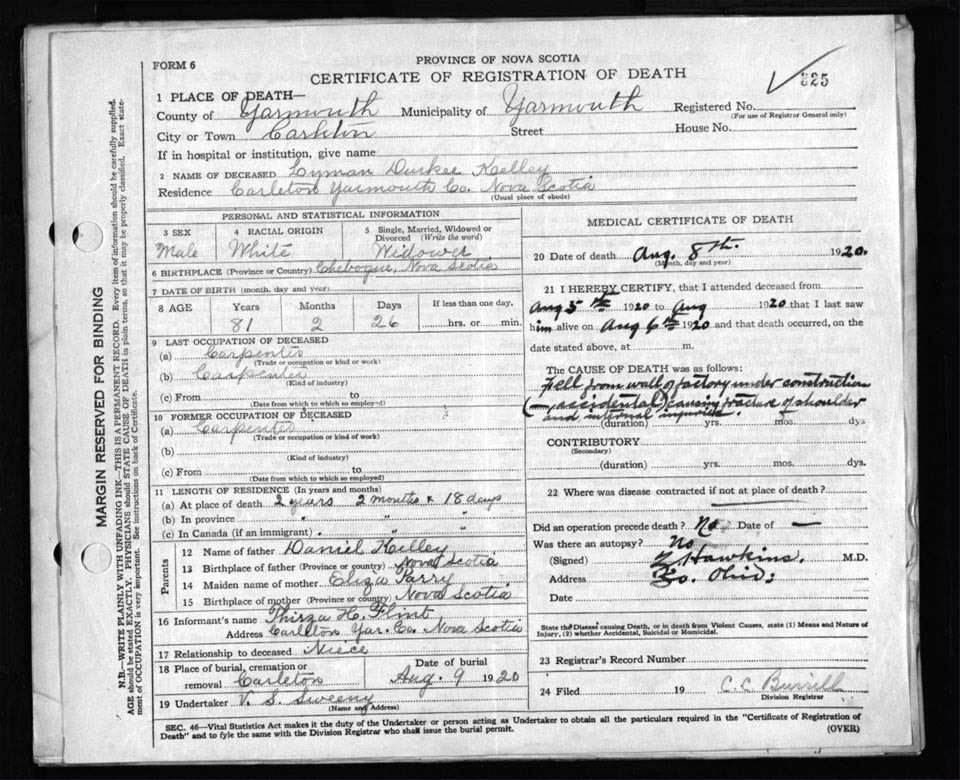 FORM 6
PROVINCE OF NOVA SCOTIA
CERTIFICATE OF REGISTRATION OF DEATH
325
1 PLACE OF DEATH—
County of Yarmouth Municipality of Yarmouth Registered No.
(For use of Registrar General only)
City or Town Carleton Street House No.
If in hospital or institution, give name
2 NAME OF DECEASED Lyman Durkee Kelley
Residence Carleton Yarmouth Co. Nova Scotia
(Usual place of abode)
PERSONAL AND STATISTICAL INFORMATION
3 SEX 4 RACIAL ORIGIN 5 Single, Married, Widowed or Divorced (Write the word)
Male White Widower
6 BIRTHPLACE (Province or Country) Chebogue, Nova Scotia
7 DATE OF BIRTH (month, day and year)
8 AGE Years Months Days If less than one day,
81 2 26 hrs. or min.
9 LAST OCCUPATION OF DECEASED
(a) Carpenter
(Trade or occupation or kind or work)
(b) Carpenter
(Kind of industry)
(c) From to
(Date from which to which so employed)
10 FORMER OCCUPATION OF DECEASED
(a) Carpenter
(Trade or occupation or kind of work)
(b)
(Kind of industry)
(c) From to
(Date from which to which so employed)
11 LENGTH OF RESIDENCE (In years and months)
(a) At place of death 2 years 2 months & 18 days
(b) In province " " "
(c) In Canada (if an immigrant) " " "
Parents
12 Name of father Daniel Kelley
13 Birthplace of father (Province or country) Nova Scotia
14 Maiden name of mother Eliza Parry
15 Birthplace of mother (Province or country) Nova Scotia
16 Informant's name Thirza H. Flint
Address Carleton Yar. Co. Nova Scotia
17 Relationship to deceased Niece
18 Place of burial, cremation or removal Carleton Date of burial Aug. 9 1920
19 Undertaker V. S. Sweeny
(Name and Address)
MEDICAL CERTIFICATE OF DEATH
20 Date of death Aug. 8th. 1920.
(Month, day and year)
21 I HEREBY CERTIFY, that I attended deceased from
Aug 5th 1920 to Aug 1920 that I last saw
him alive on Aug 6th 1920 and that death occurred, on the
date stated above, at m.
The CAUSE OF DEATH was as follows:
Fell from wall of factory under construction
(— accidental) causing fracture of shoulder
and internal injuries.
(duration) yrs. mos. dys
CONTRIBUTORY
(Secondary)
(duration) yrs. mos. dys.
22 Where was disease contracted if not at place of death?
Did an operation precede death? No Date of —
Was there an autopsy? No
(Signed) Z Hawkins. M.D.
Address So. Ohio:
Date
State the Disease causing Death, or in death from Violent Causes, state (1) Means and Nature of
Injury, (2) whether Accidental, Suicidal or Homicidal.
23 Registrar's Record Number
24 Filed 19 C. C. Burrell
Division Registrar
SEC. 46—Vital Statistics Act makes it the duty of the Undertaker or person acting as Undertaker to obtain all the particulars required in the "Certificate of Registration of
Death" and to fyle the same with the Division Registrar who shall issue the burial permit.
(OVER)
MARGIN RESERVED FOR BINDING
N.B.—WRITE PLAINLY WITH UNFADING INK—THIS IS A PERMANENT RECORD. Every item of information should be carefully supplied.
AGE should be stated EXACTLY. PHYSICIANS should STATE CAUSE OF DEATH in plain terms, so that it may be properly classified. Exact state-
ment of OCCUPATION is very important. See instructions on back of Certificate.